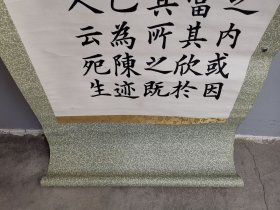 之內或因
當其欣於
其所之既
已為陳迹
人云死生